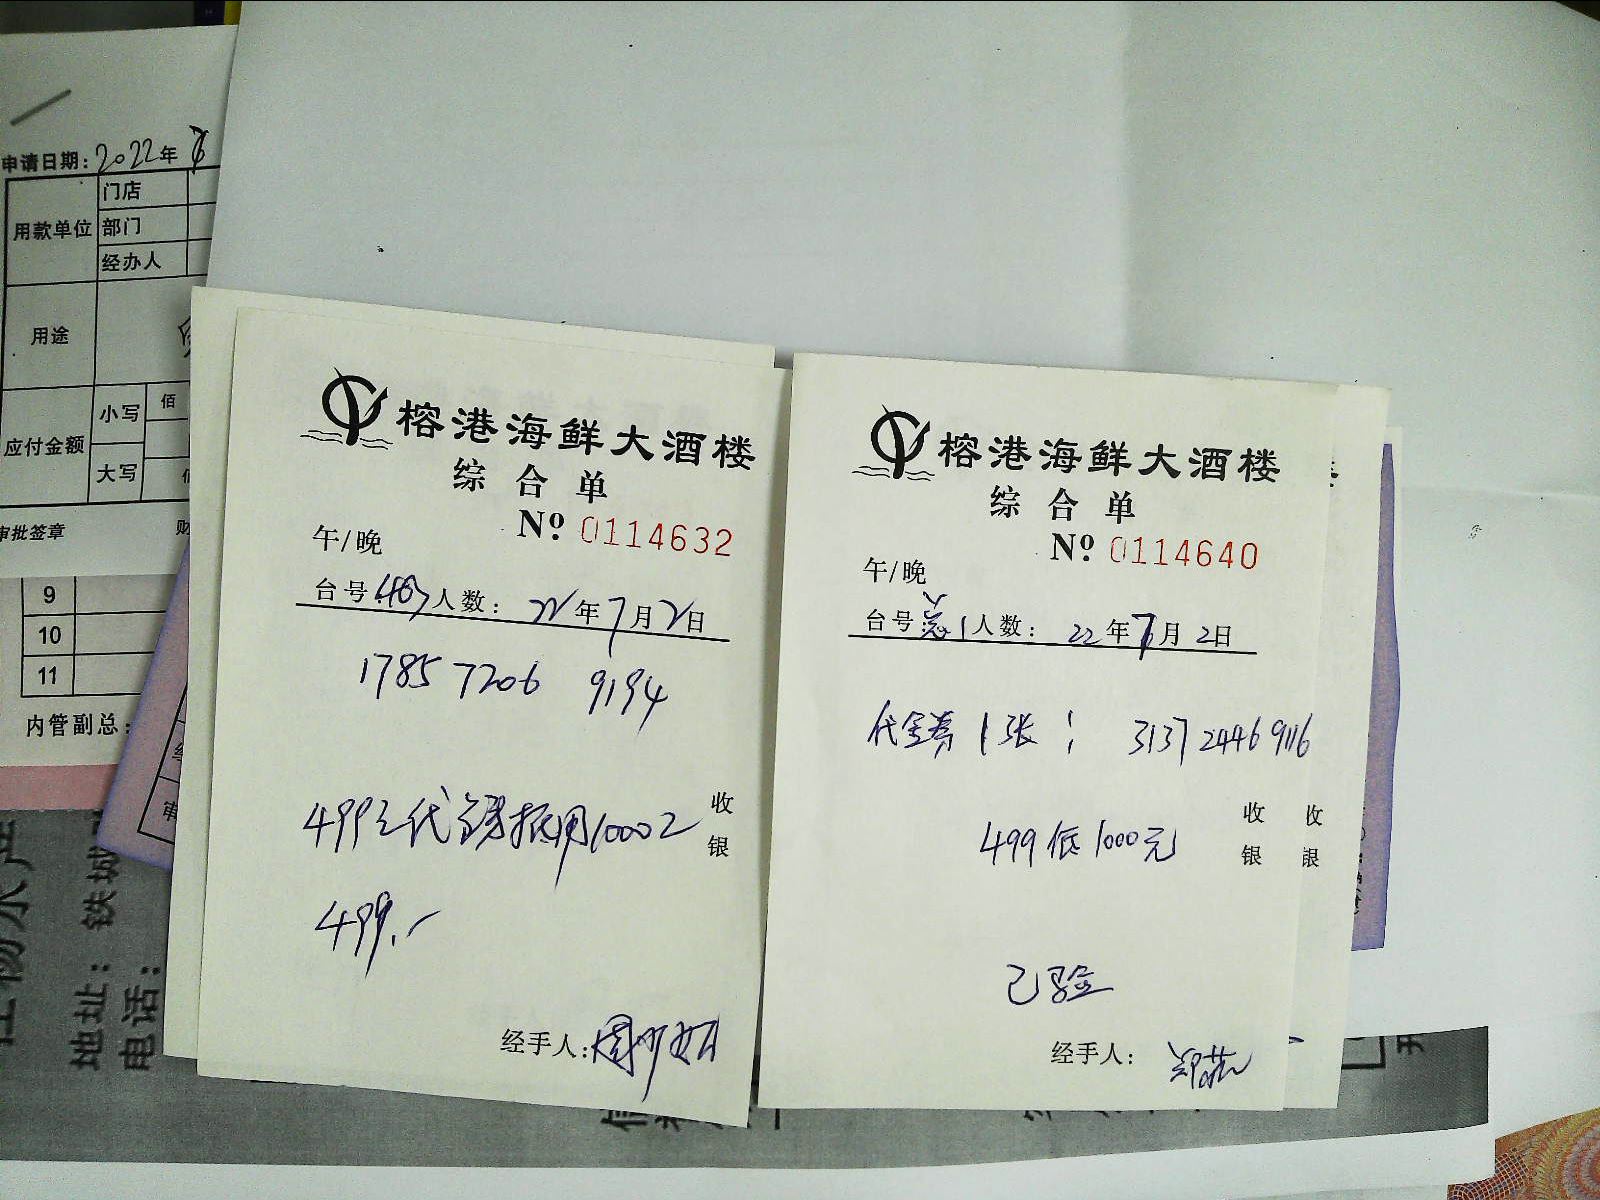 申请日期: 2022年
用款单位
门店
部门
经办人
用途
应付金额
小写
佰
大写
审批签章
财
9
10
11
内管副总:
地址: 铁城
电话:
榕港海鲜大酒楼
综合单
No. 0114632
午/晚
台号 人数: 22年7月2日
1785 7206 9194
499元代金券抵用1000元
收银
499.-
经手人:
榕港海鲜大酒楼
综合单
No. 0114640
午/晚
台号 人数: 22年7月2日
代金券1张: 3137 2446 9116
499低1000元
收银
收银
已验
经手人: